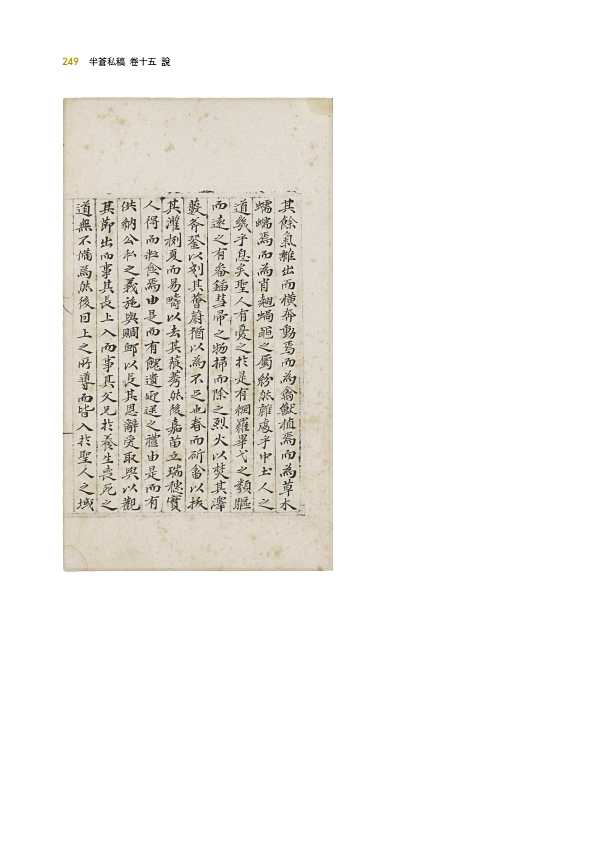 249 半蒼私稿 卷十五 說
其餘氣雜出而橫奔動焉而為禽獸植焉而為草木
蠕蠕焉而為肖翹蝸黽之屬紛然雜處乎中土人之
道幾乎息矣聖人有憂之於是有網羅畢弋之類驅
而遠之有畚鍤彗帚之物掃而除之烈火以焚其澤
藪斧釜以刈其薈蔚猶以為不足也春而斫畬以拔
其灌栵夏而易疇以去其莨莠然後嘉苗立瑞穗實
人得而粒食焉由是而有餽遺迎送之禮由是而有
供納公私之義施與賙卹以長其恩辭受取與以觀
其節出而事其長上入而事其父兄於養生喪死之
道無不備焉然後囙上之所導而皆入於聖人之域